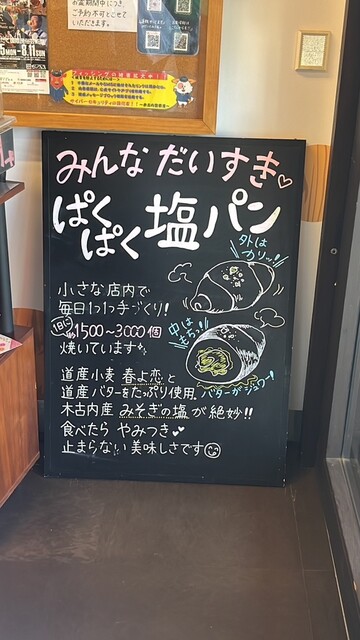 定期間中につき、
ご予約不可とさせて
5 MON - 8.11 SUN
みんな だいすき♡
ぱく
ぱく 塩パン
外は
カリッ!
小さな店内で
毎日1つ1つ手づくり!
1日に 1500〜3000個
焼いています
中は
もちっ!
バターがジュワー!
道産小麦 春よ恋と
道産バターをたっぷり使用。
木古内産 みそぎの塩が絶妙!!
食べたら やみつき
止まらない美味しさです